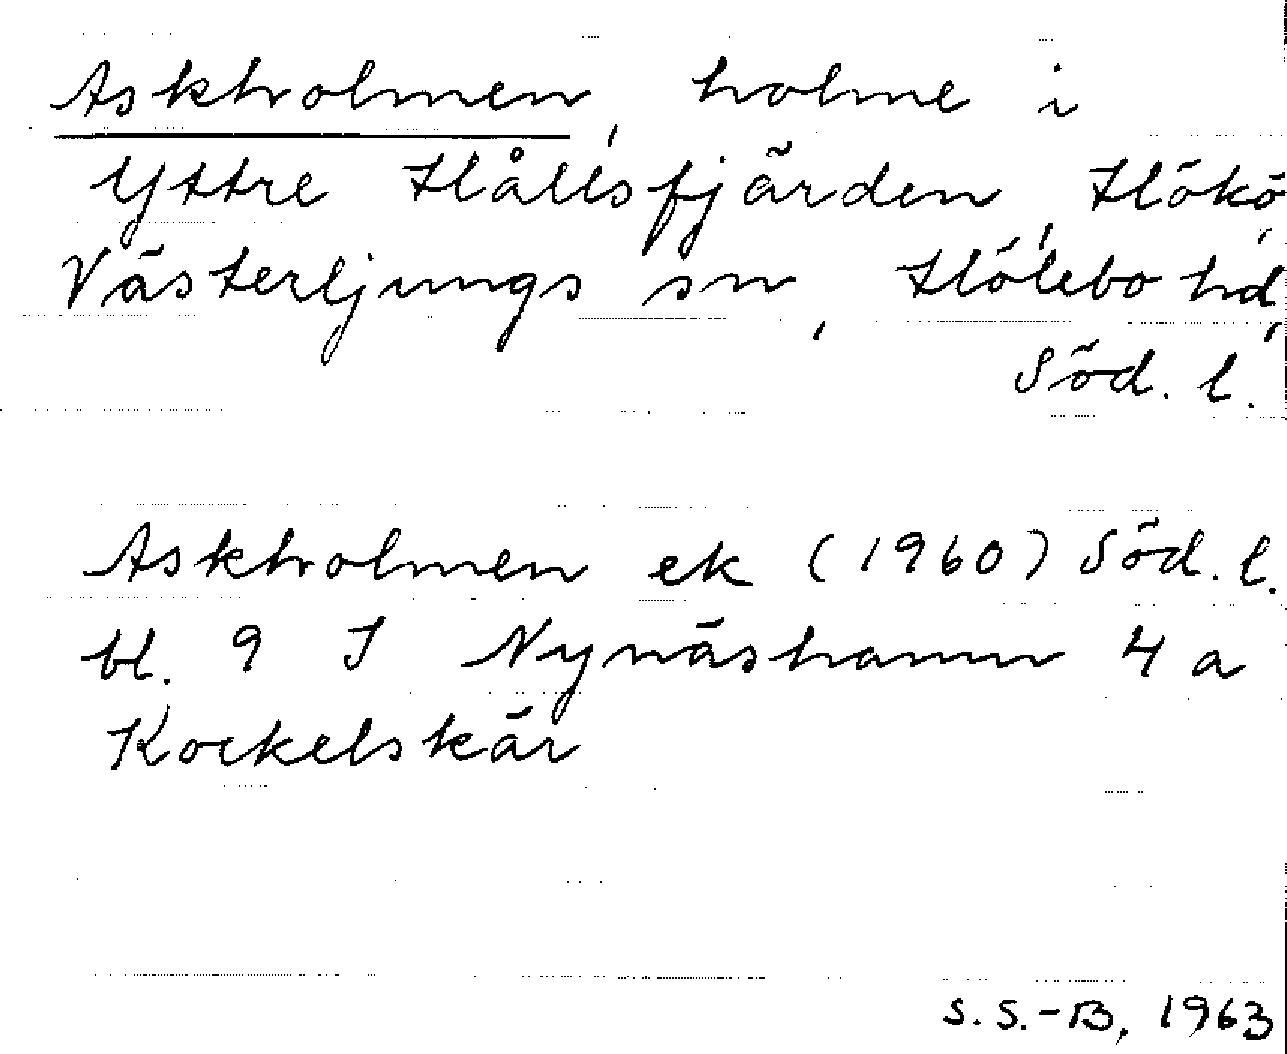 Askholmen, holme i
Yttre Hållsfjärden, Hökö,
Västerljungs sn, Hölebo hd,
Söd. l.
Askholmen ek (1960) Söd. l.
bl. 9 I Nynäshamn 4 a
Kockelskär
S. S.-B, 1963